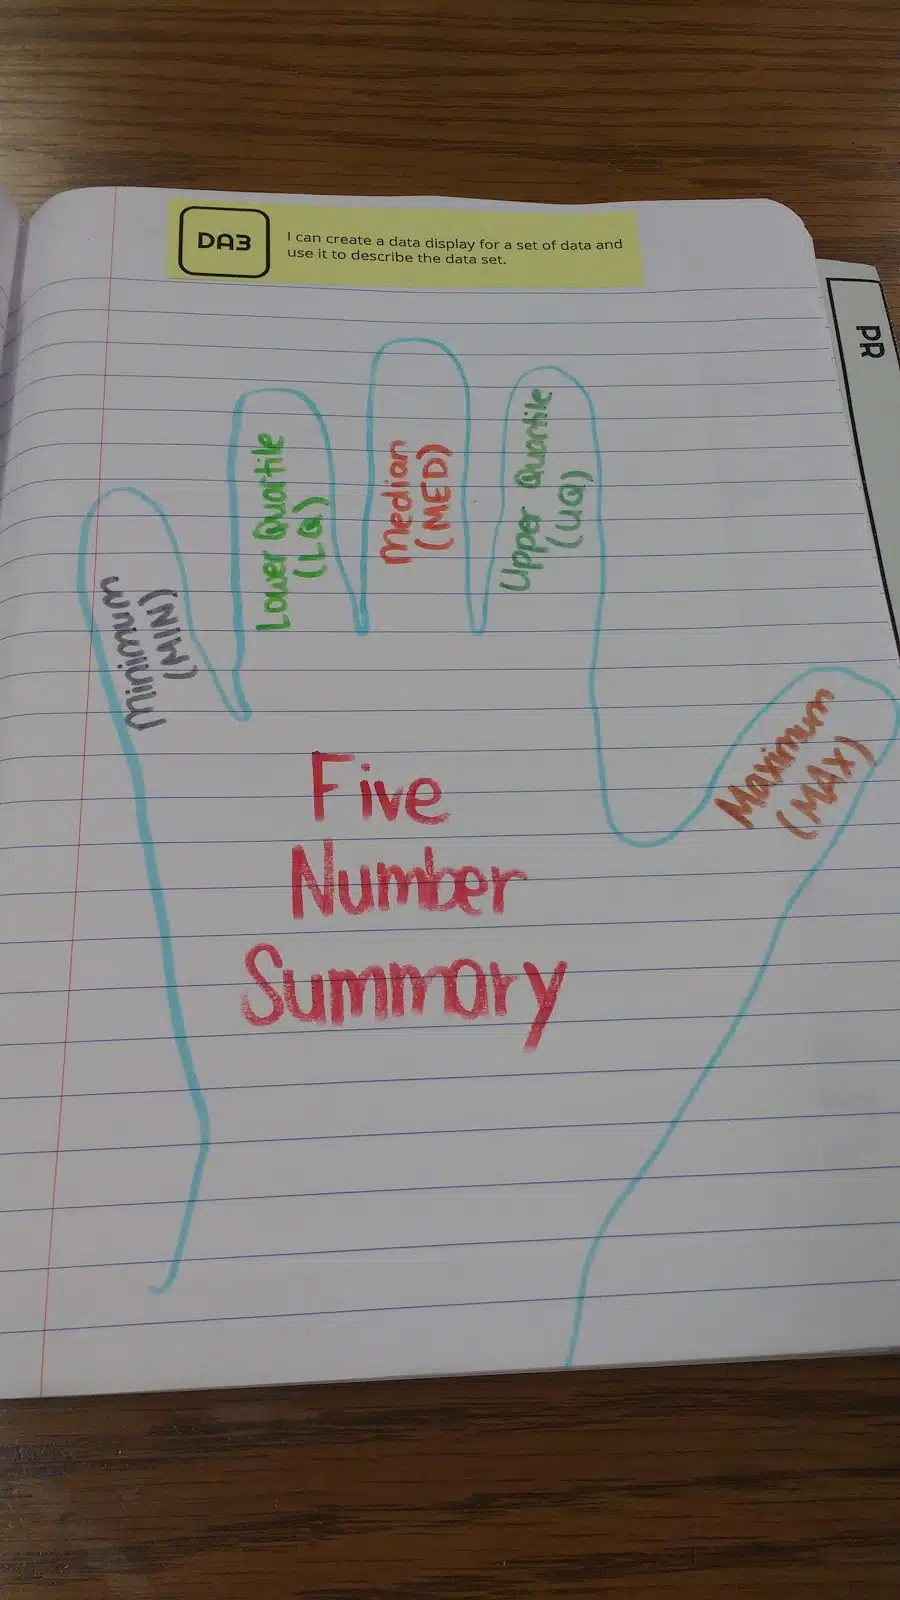 DA3
I can create a data display for a set of data and
use it to describe the data set.
PR
Minimum
(MIN)
Lower Quartile
(LQ)
Median
(MED)
Upper Quartile
(UQ)
Maximum
(MAX)
Five
Number
Summary